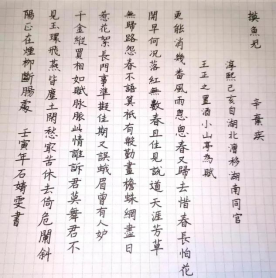 摸魚兒 辛棄疾
淳熙己亥自湖北漕移湖南同官
王正之置酒小山亭為賦
更能消幾番風雨匆匆春又歸去惜春長怕花
開早何況落紅無數春且住見說道天涯芳草
無歸路怨春不語算衹有殷勤畫檐蛛網盡日
惹飛絮長門事準擬佳期又誤蛾眉曾有人妒
千金縱買相如賦脈脈此情誰訴君莫舞君不
見玉環飛燕皆塵土閑愁最苦休去倚危闌斜
陽正在煙柳斷腸處 壬寅年石婧雯書